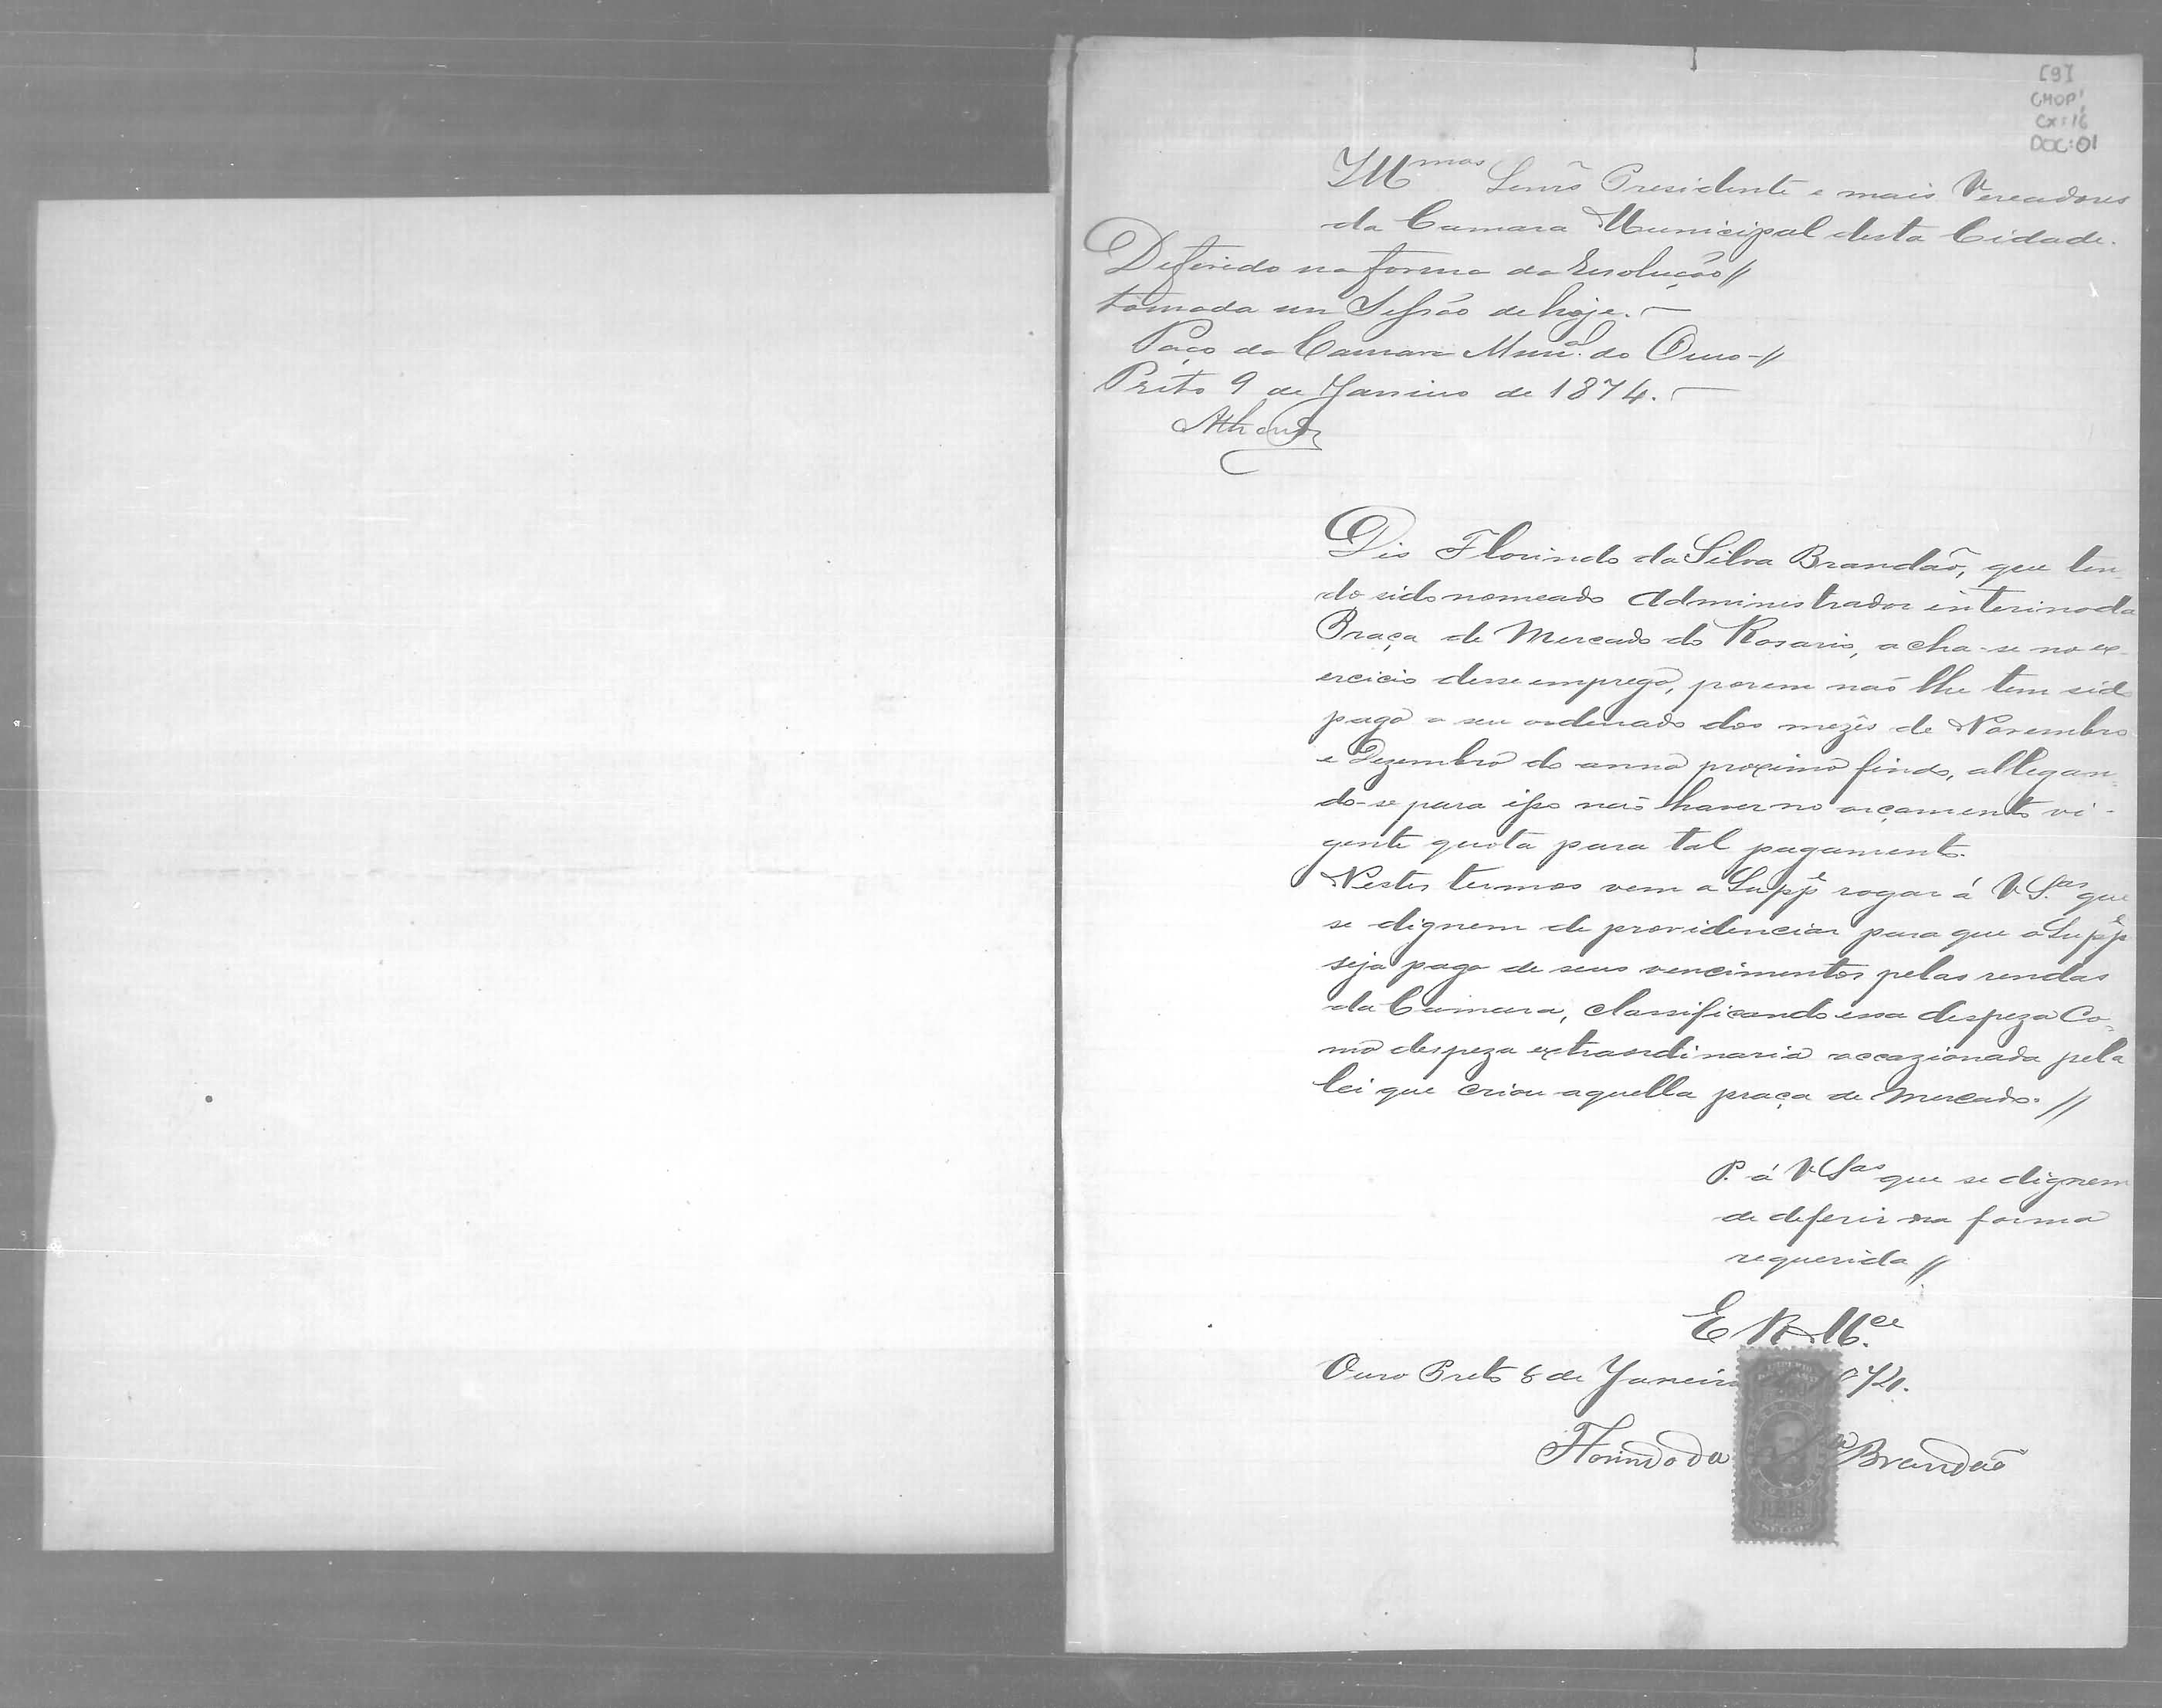 [9]
CMOP
CX: 16
DOC: 01
Illmos Senrs Presidente e mais Vereadores
da Camara Municipal desta Cidade.
Deferido na forma da resolução //
tomada em Sessão de hoje. —
Paço da Camara Munal. do Ouro - //
Preto 9 de Janeiro de 1874. —
Dis Florindo da Silva Brandão, que ten-
do sido nomeado Administrador interino da
Praça de Mercado do Rosario, acha-se no ex-
ercicio desse emprego, porem não lhe tem sido
pago o seu ordenado dos mezês de Novembro
e Dezembro do anno proximo findo, allegan-
do-se para isso não haver no orçamento vi-
gente quota para tal pagamento.
Nestes termos vem o Suppe rogar á V. S.as que
se dignem de providenciar para que o Suppe
seja pago de seus vencimentos pelas rendas
da Camara, classificando essa despeza Co-
mo despeza extraordinaria occazionada pela
lei que criou aquella praça de Mercado. //
P. á V. Sas que se dignem
de deferir na forma
requerida //
E. R. M.ce
Ouro Preto 8 de Janeiro 1874.
Florindo da Silva Brandão
REIS